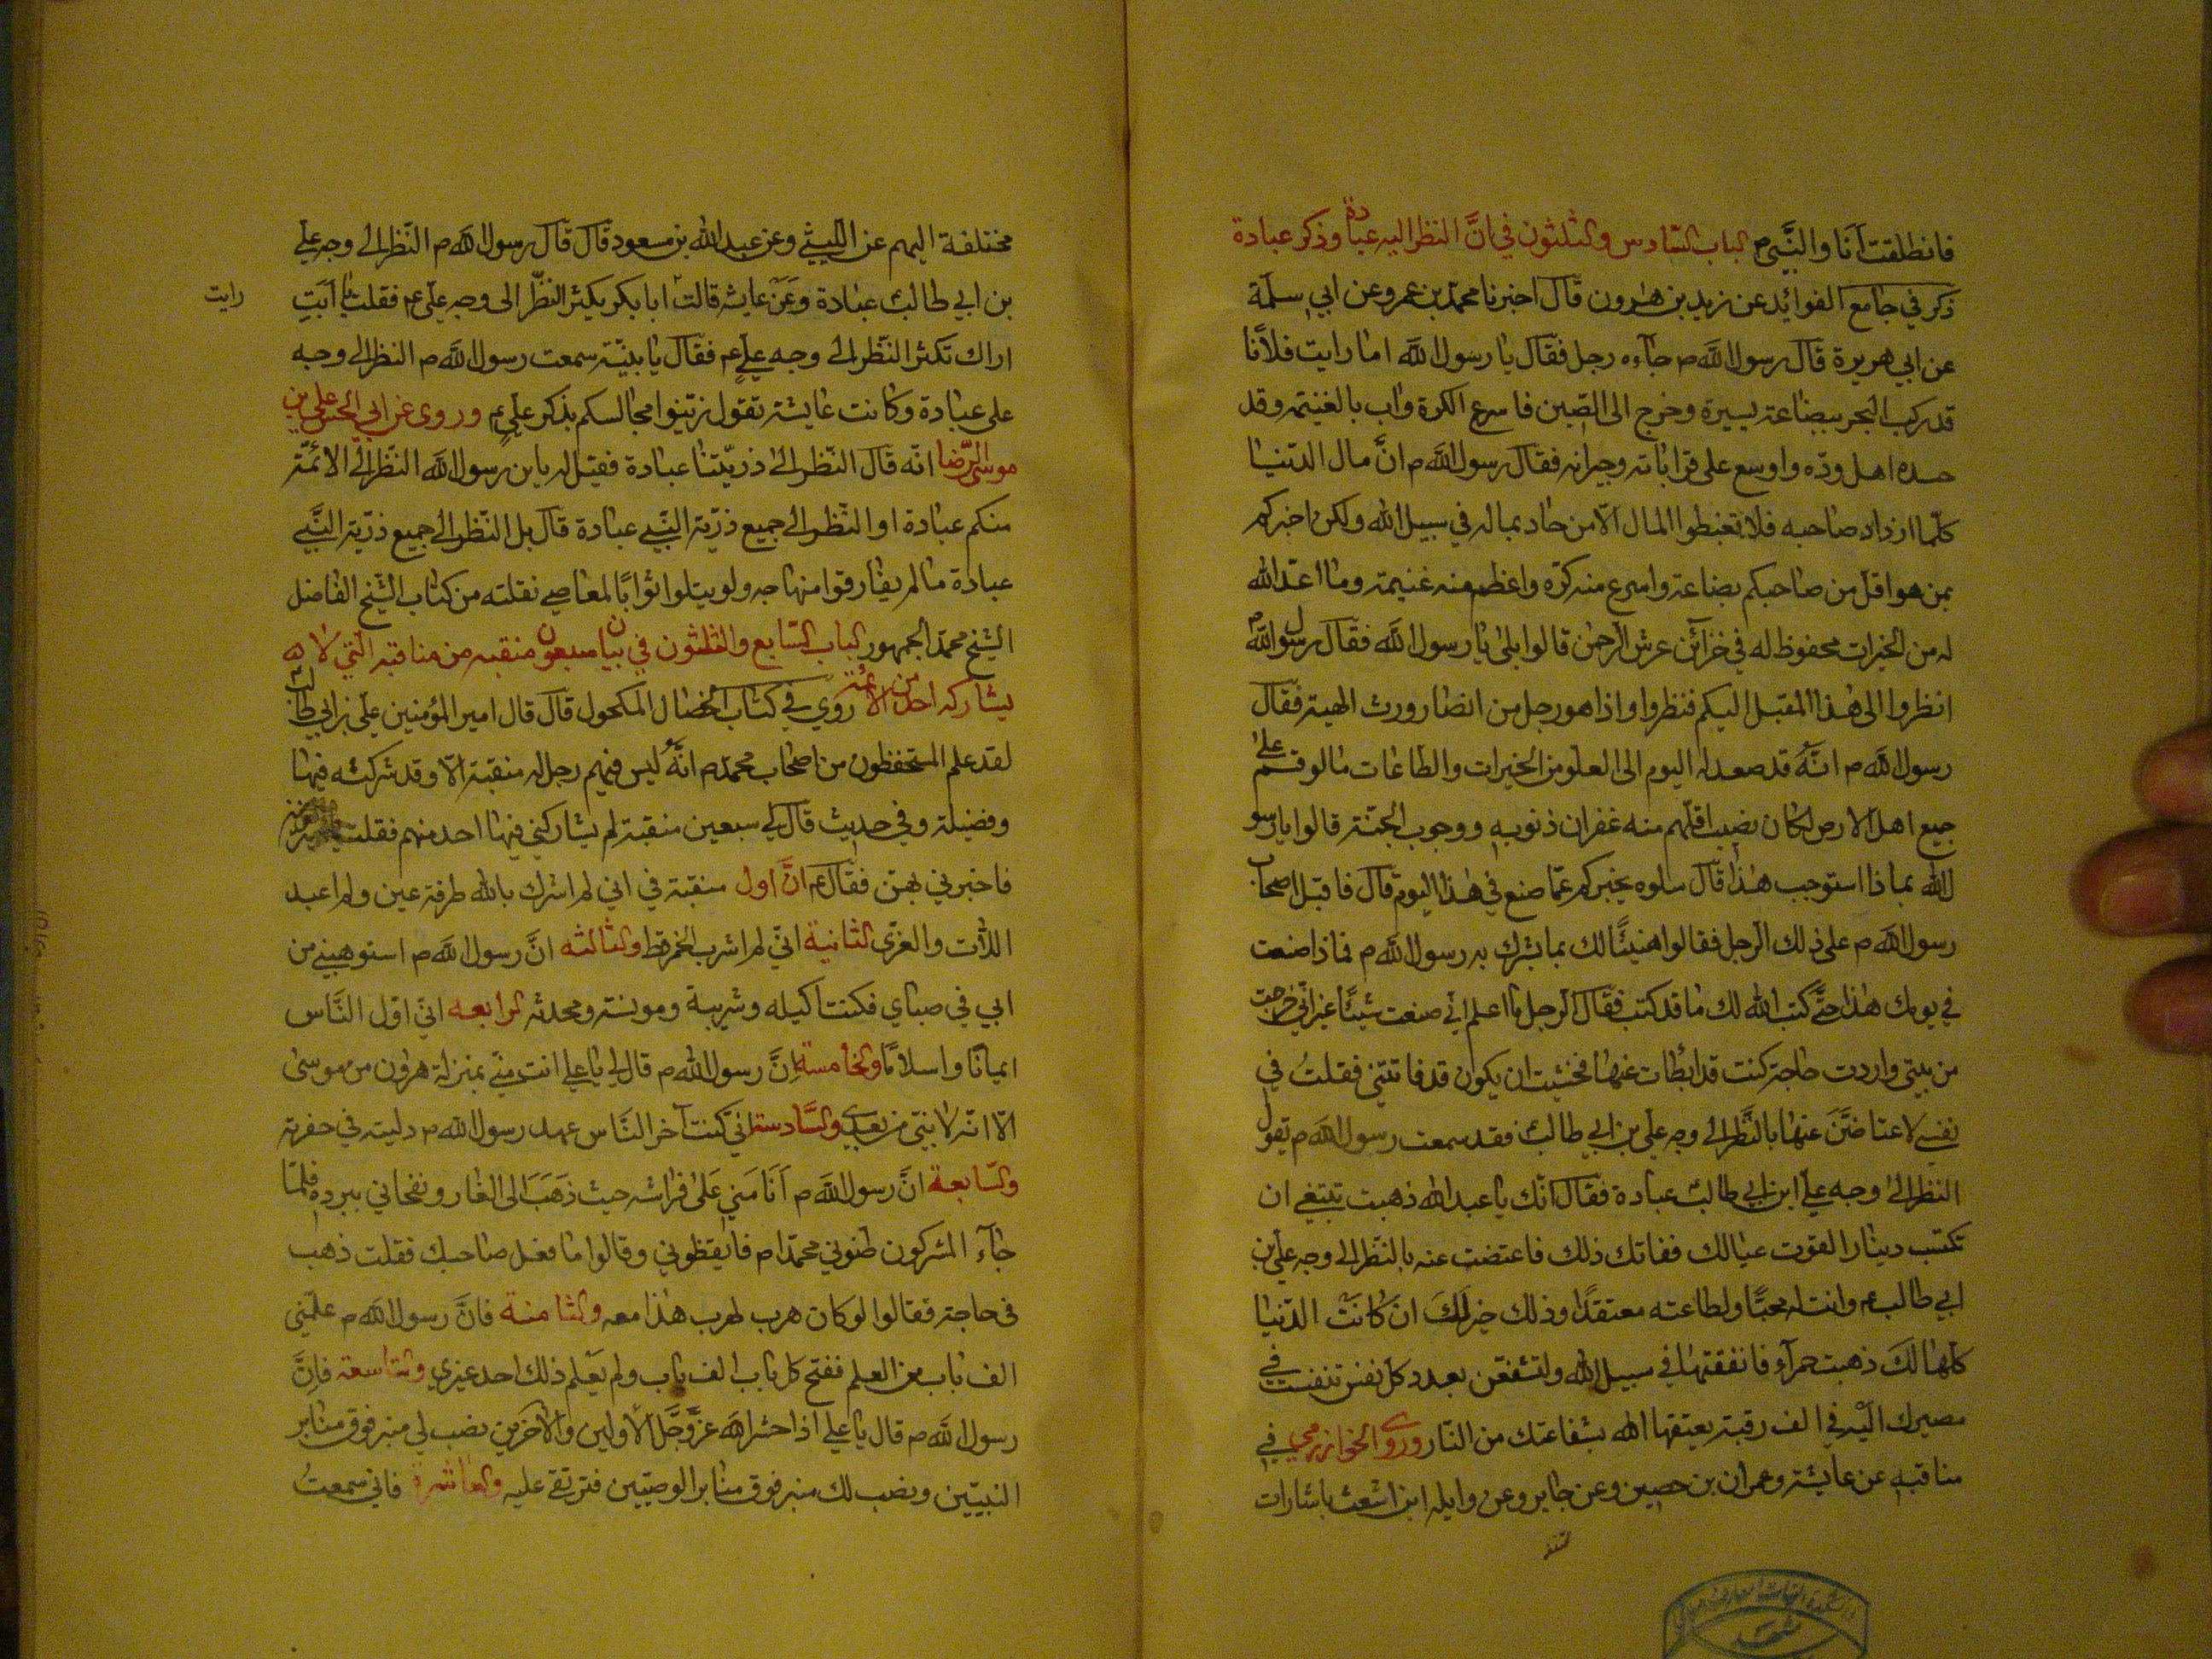 فانطلقت أنا والنَّبي م الباب السّادس والثلثون في انَّ النظر اليه عبادة وذكر عبادة
ذكر في جامع الفوائد عن زيد بن هرون قال اخبرنا محمد بن عمرو عن ابي سلمة
عن ابي هريرة قال رسول الله م جآءه رجل فقال يا رسول الله اما رايت فلانًا
قد ركب البحر ببضاعة يسيرة وخرج الى الصّين فاسرع الكرة واب بالغنيمة وقد
حسده اهل ودّه واوسع على قراباته وجيرانه فقال رسول الله م انَّ مال الدّنيا
كلّما ازداد صاحبه فلا تغبطوا المال الّا من جاد بماله في سبيل الله ولكن اخبركم
بمن هو اقلّ من صاحبكم بضاعة واسرع منه كرّة واعظم منه غنيمة وما اعتد الله
له من الخيرات محفوظ له في خزآئن عرش الرّحمن قالوا بلى يا رسول الله فقال رسول الله م
انظروا الى هذا المقبل اليكم فنظروا واذا هو رجل من انصار ورث الهيئة فقال
رسول الله م انَّه قد صعد له اليوم الى العلو من الخيرات والطّاعات ما لو قسّم على
جميع اهل الارض لكان نصيب اقلّهم منه غفران ذنوبه ووجوب الجنّة قالوا يا رسو
الله بماذا استوجب هذا قال سلوه يخبركم عمّا صنع في هذا اليوم قال فاقبل اصحاب
رسول الله م على ذلك الرّجل فقالوا هنيئًا لك بما بشرك به رسول الله م فماذا صنعت
في يومك هذا حتّى كتب الله لك ما قد كتب فقال الرّجل ما اعلم انّي صنعت شيئًا غير انّي خرجت
من بيتي واردت حاجة كنت قد ابطات عنها فخشيت ان يكون قد فاتتني فقلتُ في
نفسي لاعتاضَنَّ عنها بالنَّظر الى وجه علي بن ابي طالب فقد سمعت رسول الله م تقول
النظر الى وجه علي ابن ابي طالب عبادة فقال انّك يا عبد الله ذهبت تبتغي ان
تكتسب دينارا لقوت عيالك ففاتك ذلك فاعتضت عنه بالنّظر الى وجه علي بن
ابي طالب عم وانت له محبًّا ولطاعته معتقدًا وذلك خير لك ان كانت الدّنيا
كلّها لك ذهبت حمرآء فانفقتها في سبيل الله ولتشفعن بعدد كل نفس تنفست في
مصيرك الَيْه في الف رقبة يعتقها الله بشفاعتك من النّار وروى الخوارزمي في
مناقبه عن عايشة وعمران بن حصين وعن جابر وعن وايله ابن اشعث باشارات
مختلفة اليهم عن اللّيثي وعن عبد الله بن مسعود قال قال رسول الله م النّظر الى وجه علي
بن ابي طالب عبادة وعَن عايشه قالت ابا بكر يكثر النظّر الى وجه علي عم فقلت يا ابَتِ
رايت
اراك تكثر النّظر الى وجه عليٍ عم فقال يا بنيّة سمعت رسول الله م النظر الى وجه
على عبادة وكانت عايشة تقول زيّنوا مجالسكم بذكر علي عم وروى عن ابي الحسن علي بن
موسى الرّضا انّه قال النّظر الى ذريّتنا عبادة فقيل له يا بن رسول الله النّظر الى الائمّة
منكم عبادة او النّظر الى جميع ذرّية النّبي عبادة قال بل النّظر الى جميع ذرّية النَّبي
عبادة ما لم يفارقوا منهاجه ولو يتلواثوا بالمعاصي نقلته من كتاب الشّيخ الفاضل
الشّيخ محمد الجمهور الباب السّابع والثلثون في بيان سبعون منقبه من مناقبه الّتي لا
يشاركه احد من الائمة روي في كتاب الخصال المكحول قال قال امير المؤمنين علي بن ابي طالب
لقد علم المستحفظون من اصحاب محمد م انّه ليس فيهم رجل له منقبة الّا وقد شركته فيها
وفضيلة وفي حديث قال لي سبعين منقبة لم يشاركني فيها احد منهم فقلت
فاخبرني بهنّ فقال عم انَّ اول منقبة في اني لم اشرك بالله طرفة عين ولم اعبد
اللّات والعزّى الثانية انّي لم اشرب الخمر قط والثالثه انَّ رسول الله م استوهبني من
ابي في صباي فكنت اكيله وشريبة ومونسة ومحدثه الرابعه انّي اوّل النَّاس
ايمانًا واسلامًا والخامسة انَّ رسول الله م قال لي يا علي انت منّي بمنزلة هرون من موسى
الّا انّه لا نبيّ من بعدي والسَّادسة انّي كنت آخر النَّاس عهد رسول الله م دليته في حفرته
والسّابعة انَّ رسول الله م اَنَامَني عَلى فراشه حيث ذهَبَ الى الغار ونحاني ببرده فلمّا
جآء المشركون ظنوني محمّدًا م فايقظوني وقالوا ما فعل صاحبك فقلت ذهب
في حاجة فقالوا لو كان هرب لهرب هذا معه والثامنة فانَّ رسول الله م علمّني
الف باب من العلم ففتح كل باب الف باب ولم يَعْلم ذلك احد غيري والتاسعة فاِنَّ
رسول الله م قال يا علي اذا حشر الله عزَّ وجَّل الاولين والاخرين نصب لي منبر فوق منابر
النبيّين ونصب لك منبر فوق منابر الوصيّين فترتقي عليه والعاشرة فاني سمعتُ